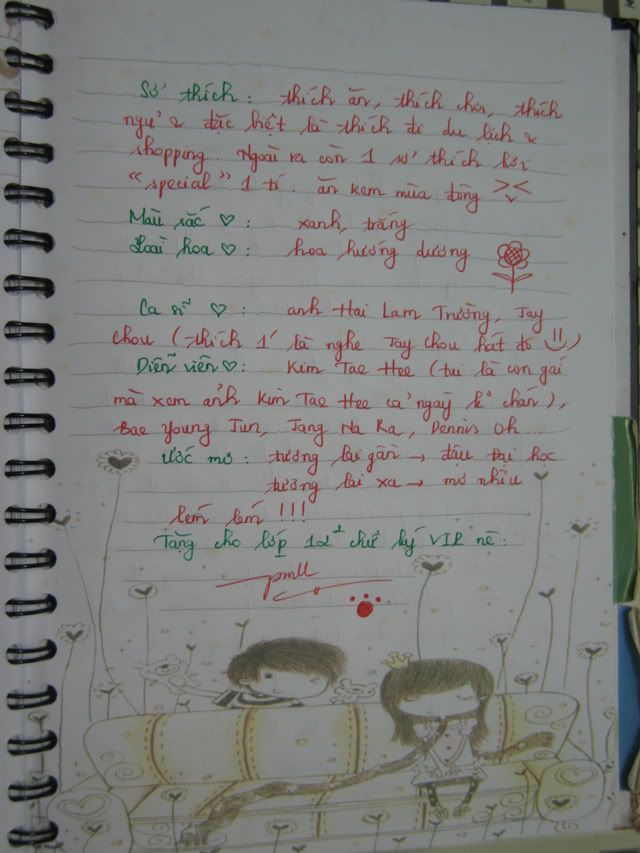 Sở thích : thích ăn, thích chơi, thích
ngủ & đặc biệt là thích đi du lịch &
shopping. Ngoài ra còn 1 sở thích hơi
“special” 1 tí : ăn kem mùa đông ><
Màu sắc ♡ : xanh, trắng
Loài hoa ♡ : hoa hướng dương
Ca sĩ ♡ : anh Hai Lam Trường, Jay
chou (thích 1' là nghe Jay chou hát đó =))
Diễn viên ♡ : Kim Tae Hee (tui là con gái
mà xem ảnh Kim Tae Hee cả ngày k chán),
Bae Young Jun, Jang Na Ra, Dennis Oh...
Ước mơ : tương lai gần → đậu Đại học
tương lai xa → mơ nhìu
lém lém !!!
Tặng cho lớp 12² chữ ký VIP nè :